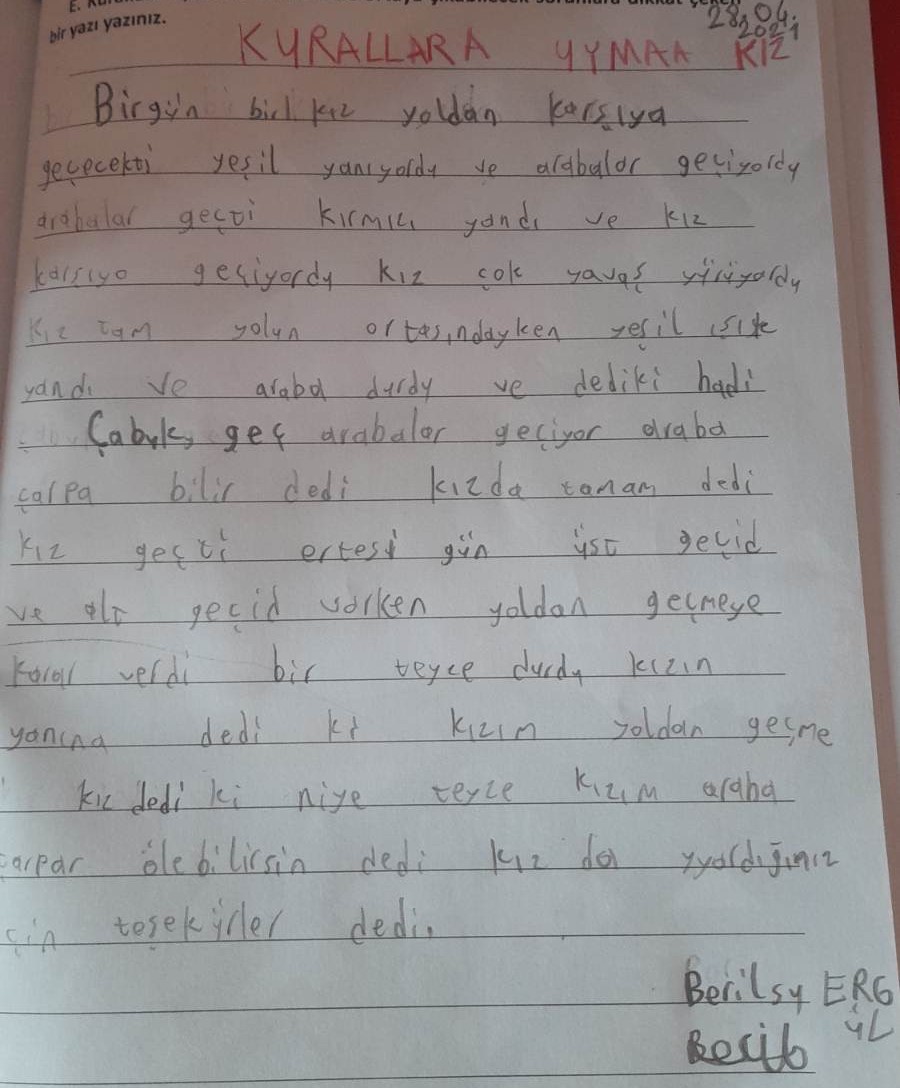 bir yazı yazınız.
28,04.
2021
KURALLARA UYMAA KIZ
Birgün birl kız yoldan karşıya
geçecekti yeşil yanıyordu ve arabalar geçiyordu
arabalar geçti kırmızı yandı ve kız
karşıya geçiyordu kız çok yavaş yürüyordu
kız tam yolun ortasındayken yeşil ışıte
yandı ve araba durdu ve dediki hadi
Çabuk, geç arabalar geçiyor araba
çarpa bilir dedi kızda tamam dedi
kız geçti ertesi gün üst geçid
ve alt geçid varken yoldan geçmeye
karar verdi bir teyce durdu kızın
yanına dedi ki kızım yoldan geçme
kız dedi ki niye teyze kızım araba
çarpar ölebilirsin dedi kız da uyardığınız
çin teşekürler dedi.
Berilsu ERG
ÜL